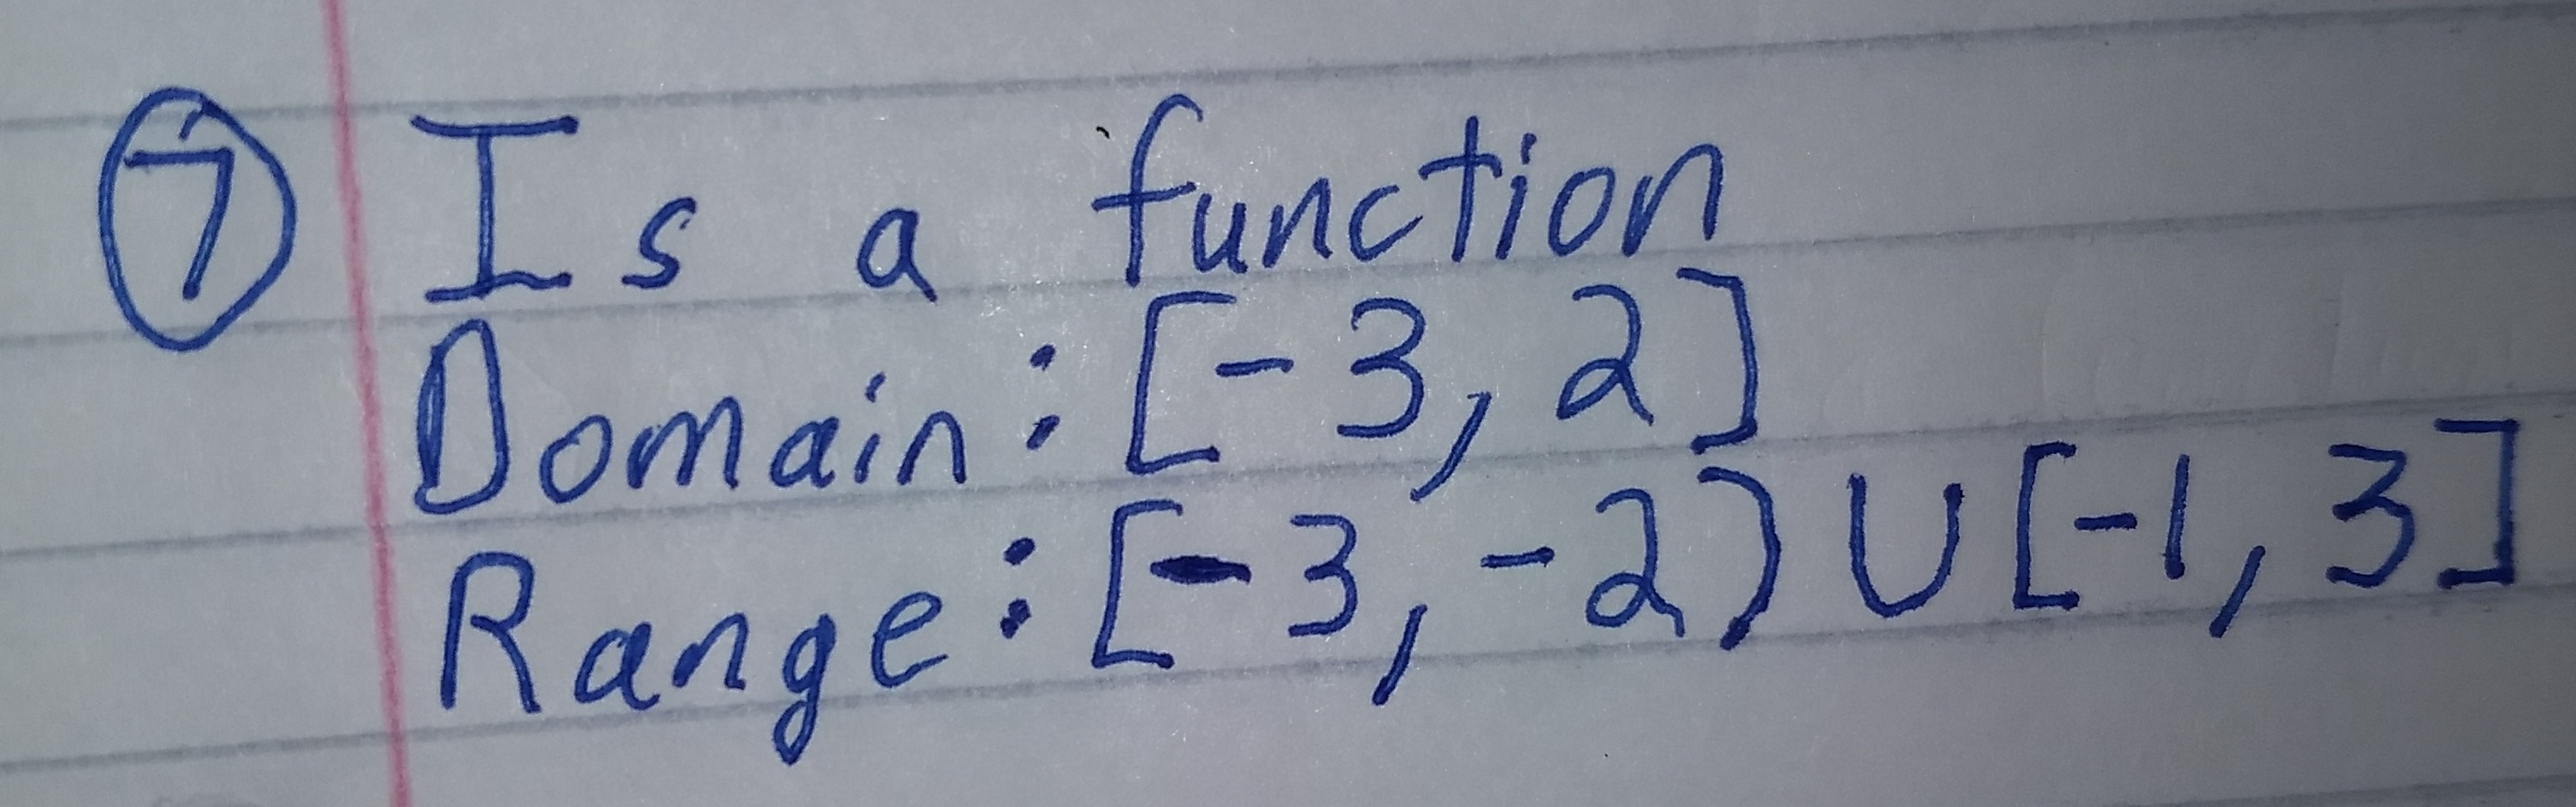 ⑦ Is a function
Domain: [-3, 2]
Range: [-3, -2) ∪ [-1, 3]